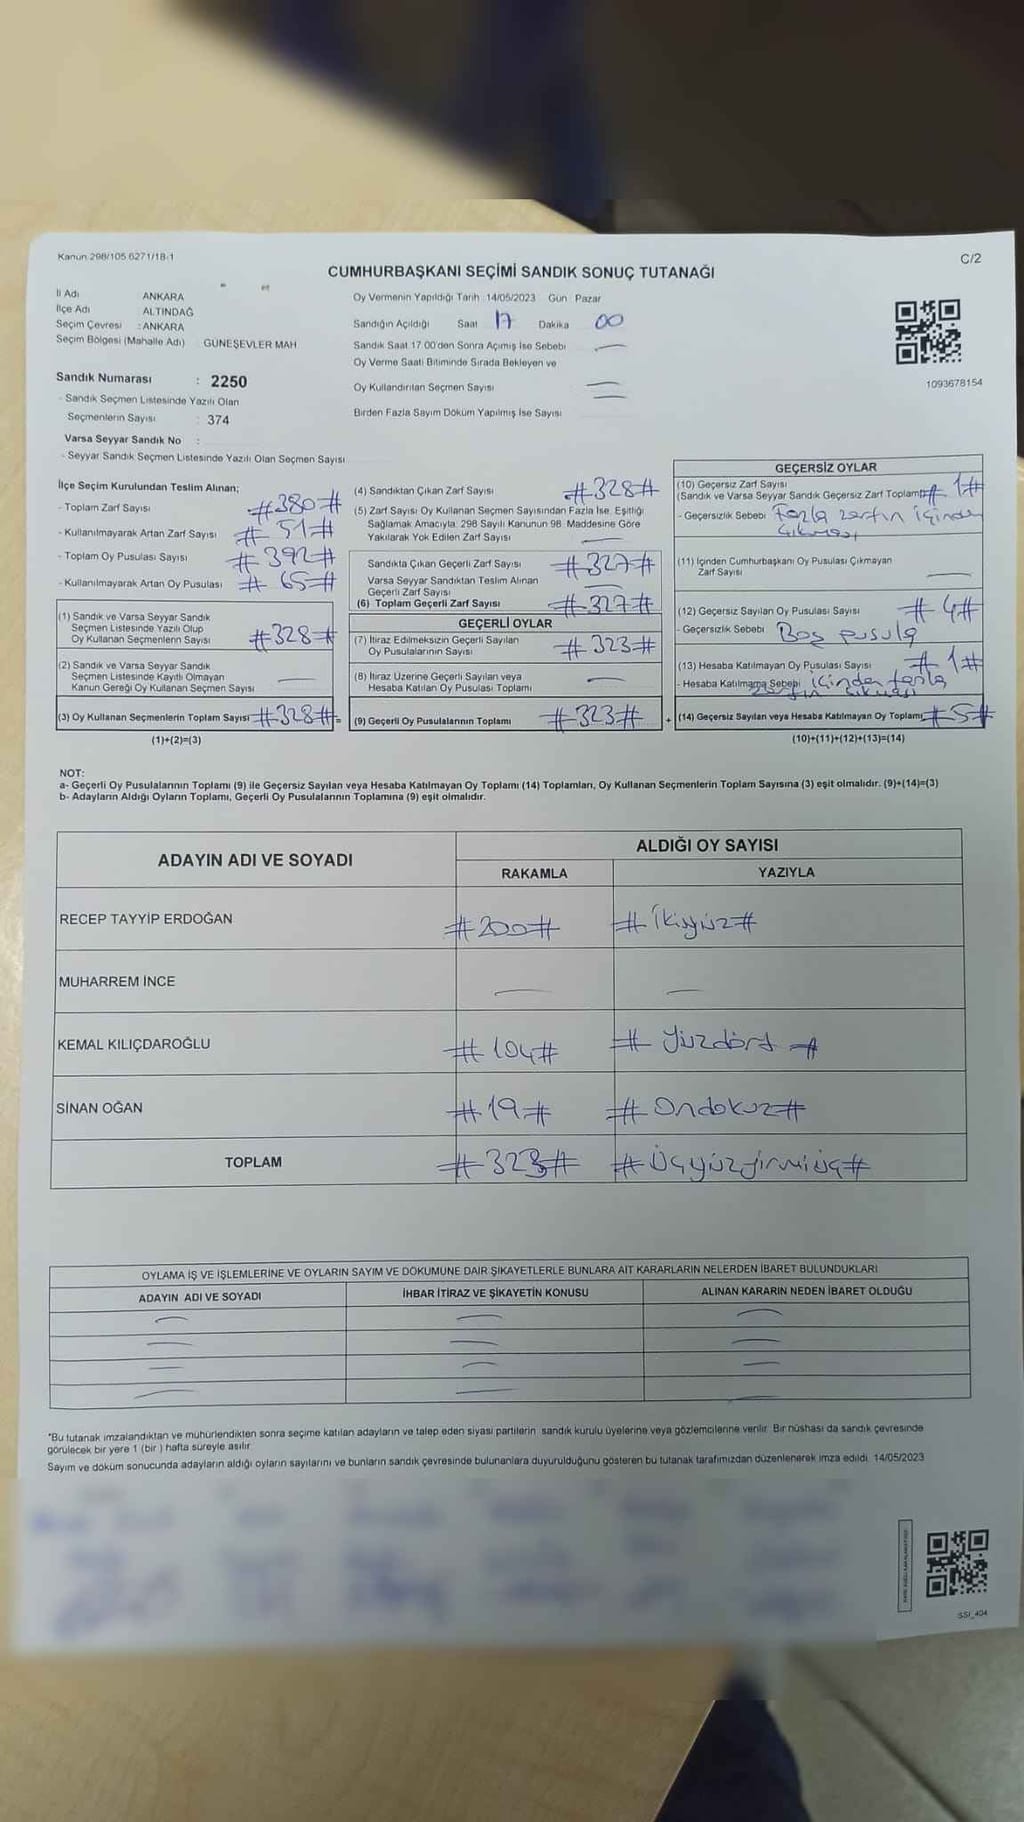 Kanun 298/105 6271/18-1
C/2
CUMHURBAŞKANI SEÇİMİ SANDIK SONUÇ TUTANAĞI
İl Adı ANKARA
İlçe Adı ALTINDAĞ
Seçim Çevresi : ANKARA
Seçim Bölgesi (Mahalle Adı) GÜNEŞEVLER MAH
Sandık Numarası : 2250
- Sandık Seçmen Listesinde Yazılı Olan
Seçmenlerin Sayısı : 374
Varsa Seyyar Sandık No :
- Seyyar Sandık Seçmen Listesinde Yazılı Olan Seçmen Sayısı
Oy Vermenin Yapıldığı Tarih 14/05/2023 Gün Pazar
Sandığın Açıldığı Saat 17 Dakika 00
Sandık Saat 17 00'den Sonra Açılmış İse Sebebi —
Oy Verme Saati Bitiminde Sırada Bekleyen ve
Oy Kullandırılan Seçmen Sayısı —
Birden Fazla Sayım Döküm Yapılmış İse Sayısı —
1093678154
İlçe Seçim Kurulundan Teslim Alınan;
- Toplam Zarf Sayısı #380#
- Kullanılmayarak Artan Zarf Sayısı #51#
- Toplam Oy Pusulası Sayısı #392#
- Kullanılmayarak Artan Oy Pusulası #65#
(1) Sandık ve Varsa Seyyar Sandık
Seçmen Listesinde Yazılı Olup
Oy Kullanan Seçmenlerin Sayısı #328#
(2) Sandık ve Varsa Seyyar Sandık
Seçmen Listesinde Kayıtlı Olmayan
Kanun Gereği Oy Kullanan Seçmen Sayısı —
(3) Oy Kullanan Seçmenlerin Toplam Sayısı #328# =
(1)+(2)=(3)
(4) Sandıktan Çıkan Zarf Sayısı #328#
(5) Zarf Sayısı Oy Kullanan Seçmen Sayısından Fazla İse, Eşitliği
Sağlamak Amacıyla; 298 Sayılı Kanunun 98. Maddesine Göre
Yakılarak Yok Edilen Zarf Sayısı —
Sandıkta Çıkan Geçerli Zarf Sayısı #327#
Varsa Seyyar Sandıktan Teslim Alınan
Geçerli Zarf Sayısı —
(6) Toplam Geçerli Zarf Sayısı #327#
GEÇERLİ OYLAR
(7) İtiraz Edilmeksizin Geçerli Sayılan
Oy Pusulalarının Sayısı #323#
(8) İtiraz Üzerine Geçerli Sayılan veya
Hesaba Katılan Oy Pusulası Toplamı —
(9) Geçerli Oy Pusulalarının Toplamı #323# +
GEÇERSİZ OYLAR
(10) Geçersiz Zarf Sayısı
(Sandık ve Varsa Seyyar Sandık Geçersiz Zarf Toplamı) #1#
- Geçersizlik Sebebi Fazla zarfın içinden
çıkması
(11) İçinden Cumhurbaşkanı Oy Pusulası Çıkmayan
Zarf Sayısı —
(12) Geçersiz Sayılan Oy Pusulası Sayısı #4#
- Geçersizlik Sebebi Boş pusula
(13) Hesaba Katılmayan Oy Pusulası Sayısı #1#
- Hesaba Katılmama Sebebi içinden fazla
zarfın çıkması
(14) Geçersiz Sayılan veya Hesaba Katılmayan Oy Toplamı #5#
(10)+(11)+(12)+(13)=(14)
NOT:
a- Geçerli Oy Pusulalarının Toplamı (9) ile Geçersiz Sayılan veya Hesaba Katılmayan Oy Toplamı (14) Toplamları, Oy Kullanan Seçmenlerin Toplam Sayısına (3) eşit olmalıdır. (9)+(14)=(3)
b- Adayların Aldığı Oyların Toplamı, Geçerli Oy Pusulalarının Toplamına (9) eşit olmalıdır.
ADAYIN ADI VE SOYADI ALDIĞI OY SAYISI
RAKAMLA YAZIYLA
RECEP TAYYİP ERDOĞAN #200# #ikiyüz#
MUHARREM İNCE — —
KEMAL KILIÇDAROĞLU #104# #yüzdört#
SİNAN OĞAN #19# #Ondokuz#
TOPLAM #323# #Üçyüzyirmiüç#
OYLAMA İŞ VE İŞLEMLERİNE VE OYLARIN SAYIM VE DÖKÜMÜNE DAİR ŞİKAYETLERLE BUNLARA AİT KARARLARIN NELERDEN İBARET BULUNDUKLARI
ADAYIN ADI VE SOYADI İHBAR İTİRAZ VE ŞİKAYETİN KONUSU ALINAN KARARIN NEDEN İBARET OLDUĞU
— — —
— — —
— — —
— — —
*Bu tutanak imzalandıktan ve mühürlendikten sonra seçime katılan adayların ve talep eden siyasi partilerin sandık kurulu üyelerine veya gözlemcilerine verilir. Bir nüshası da sandık çevresinde
görülecek bir yere 1 (bir ) hafta süreyle asılır.
Sayım ve döküm sonucunda adayların aldığı oyların sayılarını ve bunların sandık çevresinde bulunanlara duyurulduğunu gösteren bu tutanak tarafımızdan düzenlenerek imza edildi. 14/05/2023
SSI_404